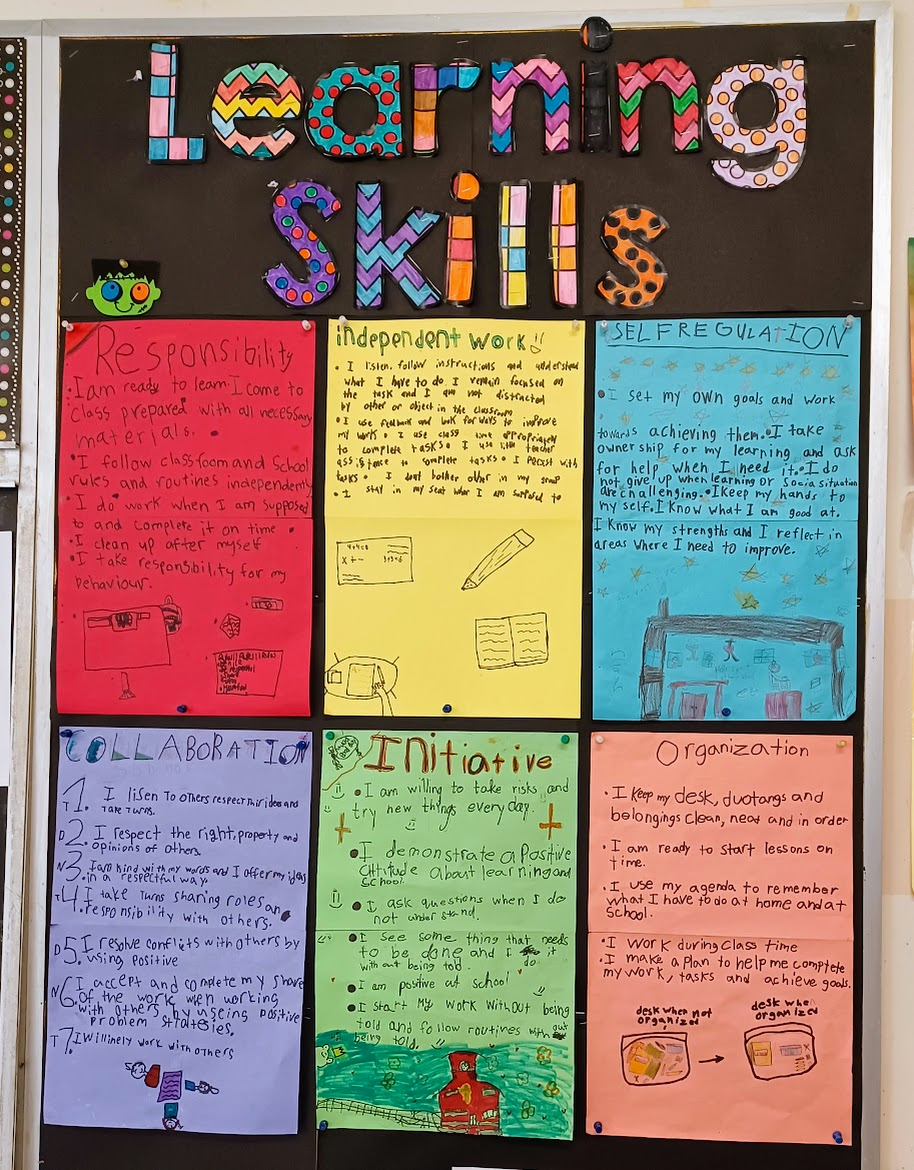 Learning
Skills
Responsibility
• I am ready to learn I come to
class prepared with all necessary
materials.
• I follow classroom and School
rules and routines independently
• I do work when I am supposed
to and complete it on time •
• I clean up after myself
• I take responsibility for my
behaviour.
independent work!!
• I listen, follow instructions and understand
what I have to do I remain focused on
the task and I am not distracted
by other or object in the classroom
• I use feedback and look for ways to improve
my work • I use class time appropriately
to complete tasks • I use with teacher
assistance to complete tasks • I Persist with
tasks • I don't bother other in my group
• I stay in my seat when I am supposed to
SELF REGULATION
• I set my own goals and work
towards achieving them. • I take
owner ship for my learning and ask
for help when I need it. • I do
not give up when learning or Socia situation
are challenging. • I keep my hands to
my self. I know what I am good at.
I know my strengths and I reflect in
areas where I need to improve.
COLLABORATION
T 1. I lisen To others respect their ideas and
Take Turns.
D 2. I respect the right, property and
opinions of others.
N 3. I am kind with my words and I offer my ideas
in a respectful way.
T 4. I take Turns sharing roles an
responsibility with others.
D 5. I resolve conflicts with others by
using positive
N 6. I accept and complete my share
of the work when working
with others by useing positive
problem strategies.
T 7. I willinely work with others
Initiative
• I am willing to take risks and
try new things every day.
• I demonstrate a Positive
attitude about learning and
School.
• I ask questions when I do
not under stand.
• I see some thing that needs
to be done and I do it
with out being told.
• I am positive at school
• I start my work without being
told and follow routines with out
being told.
Organization
• I Keep my desk, duotangs and
belongings clean, neat and in order
• I am ready to start lessons on
time.
• I use my agenda to remember
what I have to do at home and at
School.
• I work during class time
• I make a plan to help me complete
my work, tasks and achieve goals.
desk when not
organized
desk when
organized